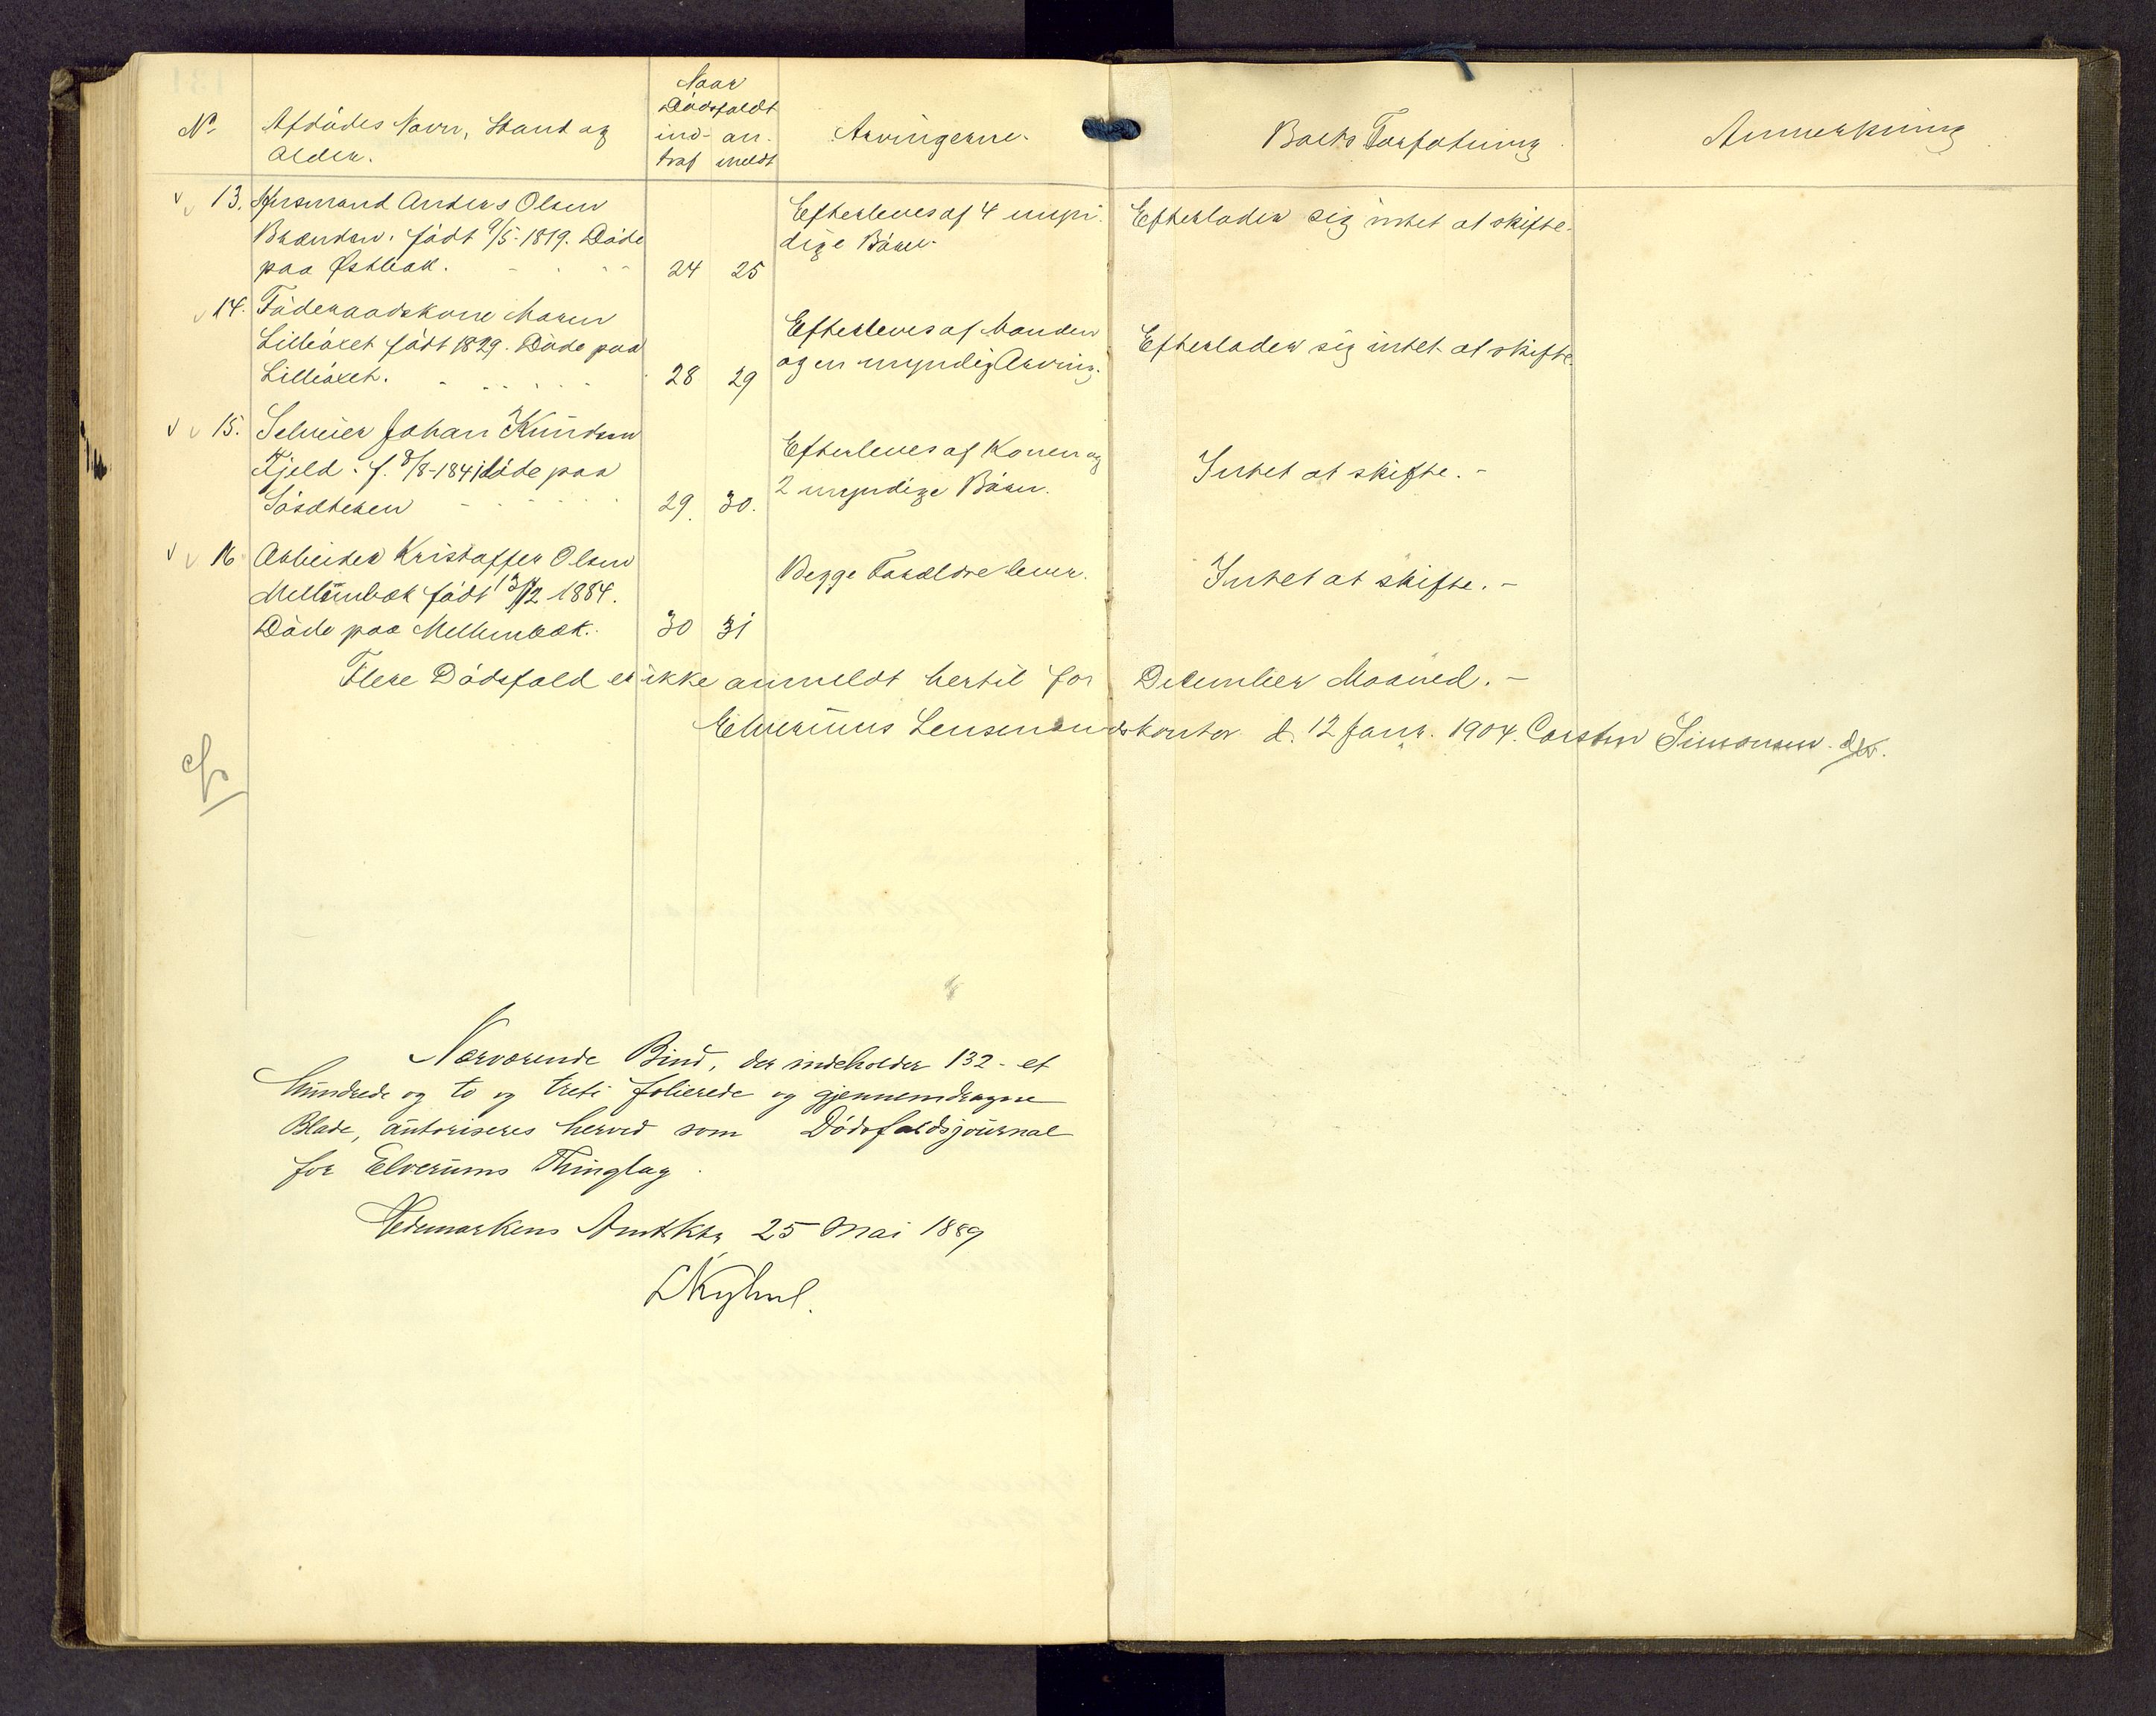 No
Afdödes Navn, Stand og
Alder.
Naar
Dödsfaldt
ind- an-
traf meldt
Arvingerne.
Boets Forfatning
Anmerkning
13. Husmand Anders Olsen
Brænden. födt 9/5-1819. Döde
paa Østbak.
24 25
Efterleves af 4 myn-
dige Börn.
Efterlader sig intet at skifte.
14. Föderaadskone Maren
Lilleöset födt 1829. Döde paa
Lilleöset.
28 29
Efterleves af Manden
og en myndig Arving.
Efterlader sig intet at skifte.
15. Selveier Johan Knudsen
Kjeld. f. 8/8-1841 döde paa
29. 30.
Efterleves af Konen og
2 myndige Börn.
Intet at skifte. -
16 Arbeider Kristoffer Olsen
Mellembak födt 13/12 1884.
Döde paa Mellembak.
30 31
Begge Forældre lever.
Intet at skifte. -
Flere Dödsfald er ikke anmeldt hertil for December Maaned. -
Elverums Lensmandskontor d. 12 Janr. 1904. Carsten Simonsen.
Nærværende Bind, der indeholder 132 - et
hundrede og to og treti folierede og gjennemdragne
Blade, autoriseres herved som Dödsfaldsjournal
for Elverums Thinglag.
Hedemarkens Amtsktr 25 Mai 1889